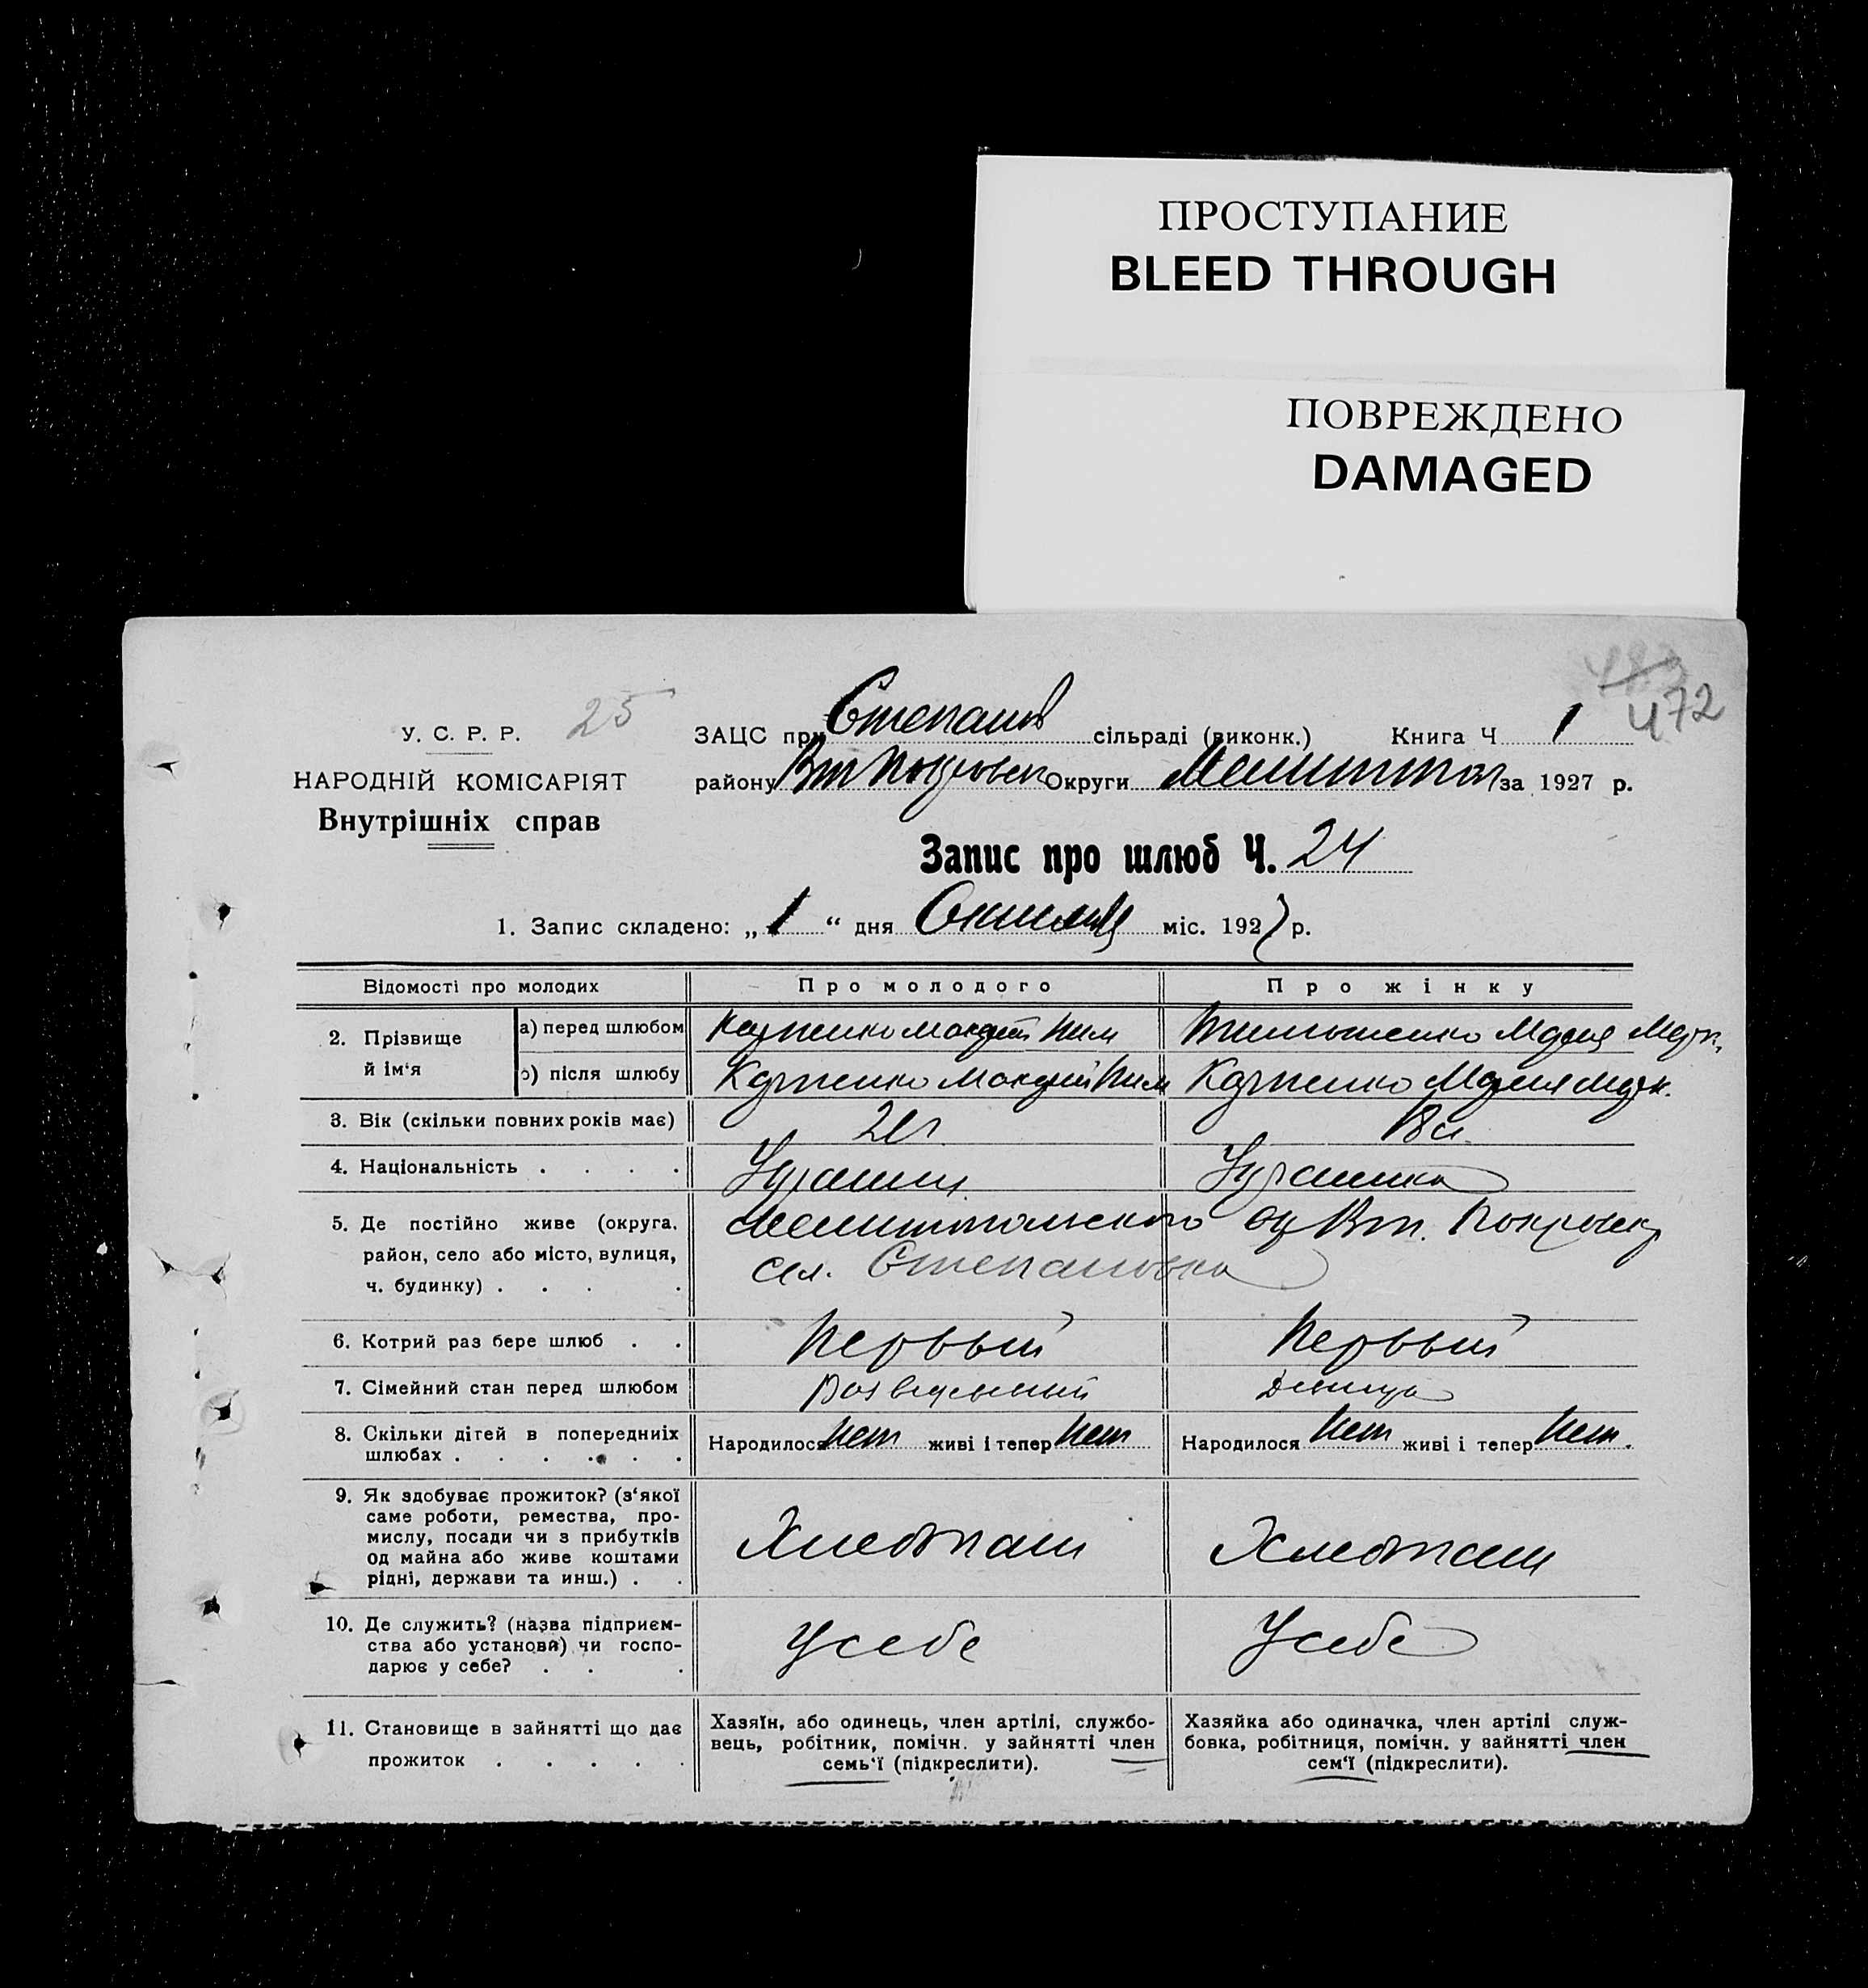 ПРОСТУПАНИЕ
BLEED THROUGH
ПОВРЕЖДЕНО
DAMAGED
472
У. С. Р. Р. 25
НАРОДНІЙ КОМІСАРІЯТ
Внутрішніх справ
ЗАЦС при Степанов сільраді (виконк.) Книга Ч 1
району Округи за 1927 р.
Запис про шлюб Ч. 24
1. Запис складено: „ 1 “ дня міс. 1927 р.
Відомості про молодих Про молодого Про жінку
2. Прізвище й ім‘я
а) перед шлюбом
б) після шлюбу Карпенко Карпенко
3. Вік (скільки повних років має) 18 л.
4. Національність . . . .
5. Де постійно живе (округа, Мелитопольского
район, село або місто, вулиця, сел. Степановка
ч. будинку) . . . .
6. Котрий раз бере шлюб . . Первый Первый
7. Сімейний стан перед шлюбом Разведенный Девица
8. Скільки дітей в попередніх Народилося Нет живі і тепер Нет Народилося Нет живі і тепер Нет.
шлюбах . . . . . .
9. Як здобуває прожиток? (з‘якої
саме роботи, ремества, про-
мислу, посади чи з прибутків Хлебопаш Хлебопаш
од майна або живе коштами
рідні, держави та инш.) . .
10. Де служить? (назва підприєм-
ства або установи) чи госпо- У себе У себе
дарює у себе? . . .
11. Становище в зайнятті що дає
прожиток . . . . .
Хазяїн, або одинець, член артілі, службо-
вець, робітник, помічн. у зайнятті член
семь‘ї (підкреслити).
Хазяйка або одиначка, член артілі служ-
бовка, робітниця, помічн. у зайнятті член
сем‘ї (підкреслити).